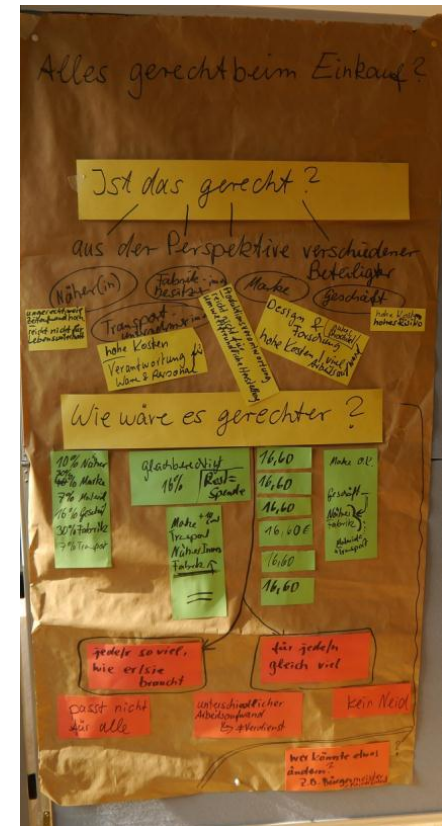 Alles gerecht beim Einkauf?
Ist das gerecht?
aus der Perspektive verschiedener
Beteiligter
Näher(in)
Fabrik-
besitzer
Marke
Geschäft
Transport
ungerecht weil
Zeitaufwand hoch
reicht nicht für
hohe Kosten
Verantwortung für
Ware & Personal
Produktionsverantwortung
reicht nicht für
umweltfreundliche Herstellung
Design &
Forschung
hohe Kosten
viel
hohe Kosten
hohes Risiko
Wie wäre es gerechter?
10% Näher
Marke
7% Material
16% Geschäft
30% Fabrik
7% Transport
gleichberechtigt
16%
Rest =
Spende
Marke
Transport
NäherInnen
Fabrik
16,60
16,60
16,60
16,60€
16,60
16,60
Marke O.K.
Geschäft
Näher
Fabrik
Material
Transport
jede/r so viel,
wie er/sie
braucht
für jede/n
gleich viel
passt nicht
für alle
unterschiedlicher
Arbeitsaufwand
↳ ≠ Verdienst
kein Neid
Wer könnte etwas
ändern?
Z.B. Bürgermeister